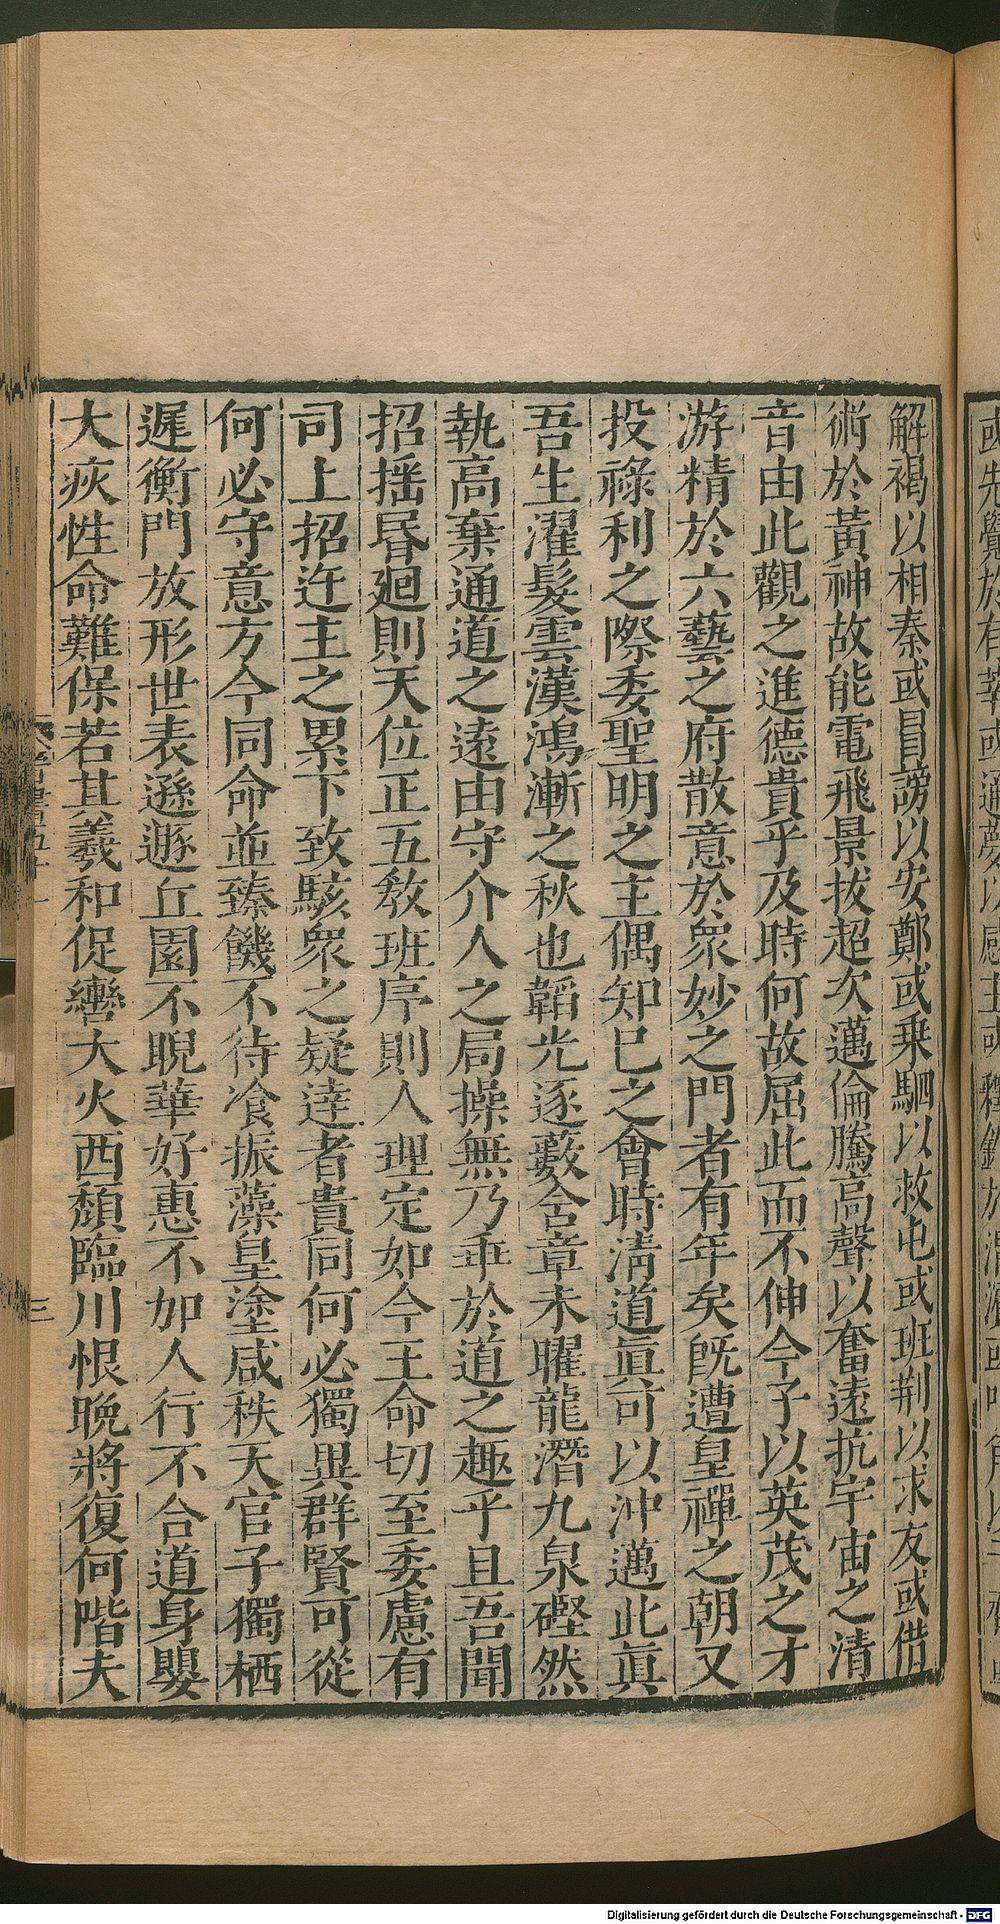 解褐以相秦或員謗以安鄭或乗駟以救屯或班荆以求友或借
術於黃神故能電飛景拔超次邁倫騰高聲以奮遠抗宇宙之清
音由此觀之進德貴乎及時何故屈此而不伸今子以英茂之才
游精於六藝之府散意於衆妙之門者有年矣旣遭皇禪之朝又
投祿利之際委聖明之主偶知巳之會時淸道眞可以沖邁此眞
吾生濯髮雲漢鴻漸之秋也韜光逐藪含章未曜龍潛九泉硜然
執高棄通道之遠由守介人之局操無乃乖於道之趣乎且吾聞
招揺昬廻則天位正五敎班序則人理定如今王命切至委慮有
司上招迕主之累下致駭衆之疑達者貴同何必獨異群賢可從
何必守意方今同命並臻饑不待飡振藻皇塗咸秩天官子獨栖
遲衡門放形世表遜遯丘園不睨華好惠不加人行不合道身嬰
大疢性命難保若其羲和促轡大火西頹臨川恨晚將復何階夫
三
Digitalisierung gefördert durch die Deutsche Forschungsgemeinschaft - DFG